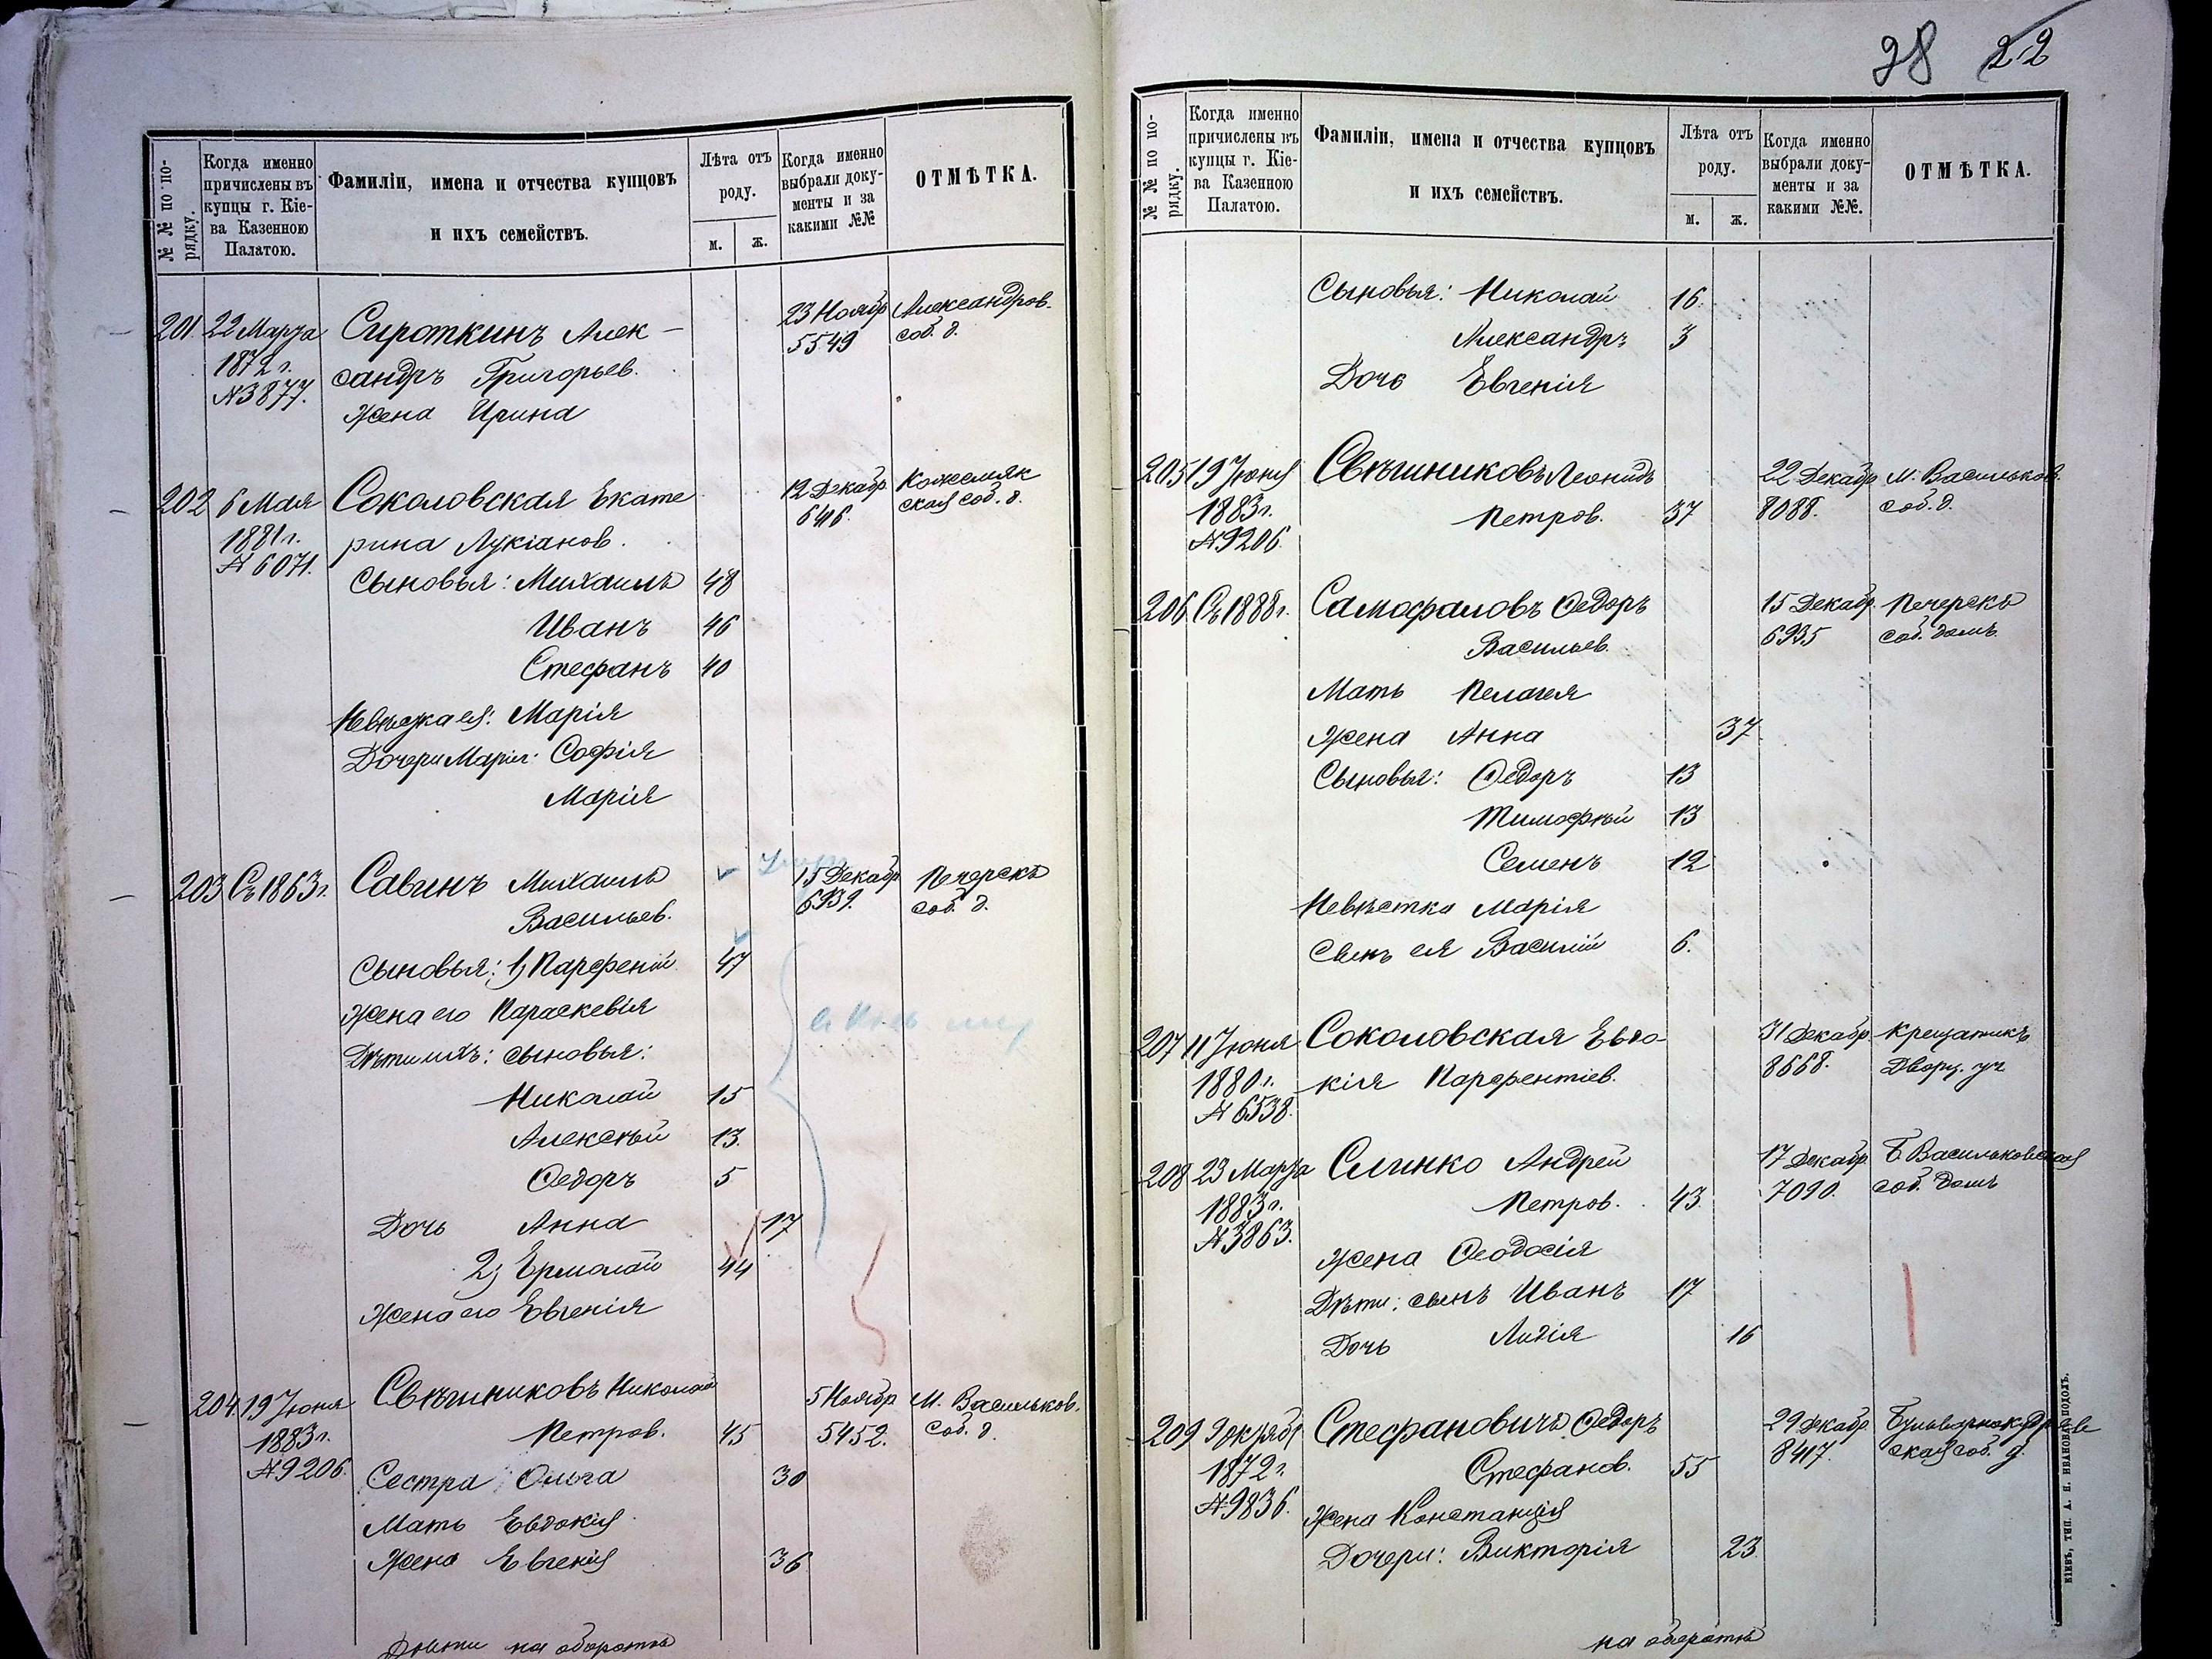 № № по по-
рядку.
Когда именно
причислены въ
купцы г. Кіе-
ва Казенною
Палатою.
Фамиліи, имена и отчества купцовъ
и ихъ семействъ.
Лѣта отъ
роду.
м. ж.
Когда именно
выбрали доку-
менты и за
какими №№
ОТМѢТКА.
201. 22 Марта Сироткинъ Алек- 23 Ноябр Александров.
1872 г. сандръ Григорьев. 5549 соб. д.
N 3877. Жена Ирина
202 6 Мая Соколовская Екате 12 Декабр Кожемяк
1881 г. рина Лукіанов. 6416. ская соб. д.
N 6071. Сыновья: Михаилъ 48
Иванъ 46
Стефанъ 40
Невѣстка ея: Марія
Дочери Маріи: Софія
Марія
203 Съ 1863 г. Савинъ Михаилъ 15 Декабр Печерскъ
Васильев. 6939. соб. д.
Сыновья: 1) Парфеній 47
Жена его Параскевія
Дѣти ихъ: сыновья:
Николай 15
Алексѣй 13.
Ѳедоръ 5
Дочь Анна 17
2) Ермолай 44
Жена его Евгенія
204. 19 Іюня Свѣшниковъ Николай 5 Ноябр М. Васильков.
1883 г. Петров. 45 5452. соб. д.
N 9206. Сестра Ольга 30
Мать Евдокія
Жена Евгенія 36
Дѣти на оборотѣ
28 22
№ № по по-
рядку.
Когда именно
причислены въ
купцы г. Кіе-
ва Казенною
Палатою.
Фамиліи, имена и отчества купцовъ
и ихъ семействъ.
Лѣта отъ
роду.
м. ж.
Когда именно
выбрали доку-
менты и за
какими №№.
ОТМѢТКА.
Сыновья: Николай 16.
Александръ 3
Дочь Евгенія
205 19 Іюня Свѣшниковъ Леонидъ 22 Декабр М. Васильков.
1883 г. Петров. 37 8088. соб. д.
N 9206.
206 Съ 1888 г. Самофаловъ Ѳедоръ 15 Декабр. Печерскъ
Васильев. 6935 соб. домъ.
Мать Пелагея
Жена Анна 37
Сыновья: Ѳедоръ 13
Тимофѣй 13
Семенъ 12
Невѣстка Марія
сынъ ея Василій 6.
207 11 Іюня Соколовская Евдо- 31 Декабр. Крещатикъ
1880 г. кія Парфентіев. 8668. Дворц. уч
N 6538.
208 23 Марта Слинко Андрей 17 Декабр. Б. Васильковская
1883 г. Петров. 43. 7090. соб. домъ
N 3863. Жена Ѳеодосія
Дѣти: сынъ Иванъ 17
Дочь Лидія 16
209 9 Октябр Стефановичъ Ѳедоръ 29 Декабр. Бульварнокудряве
1872 г. Стефанов. 55 8417. ская соб. д.
N 9836. Жена Констанція
Дочери: Викторія 23.
на оборотѣ
КІЕВЪ, ТИП. А. Н. ИВАНОВА, ПОДОЛЪ.